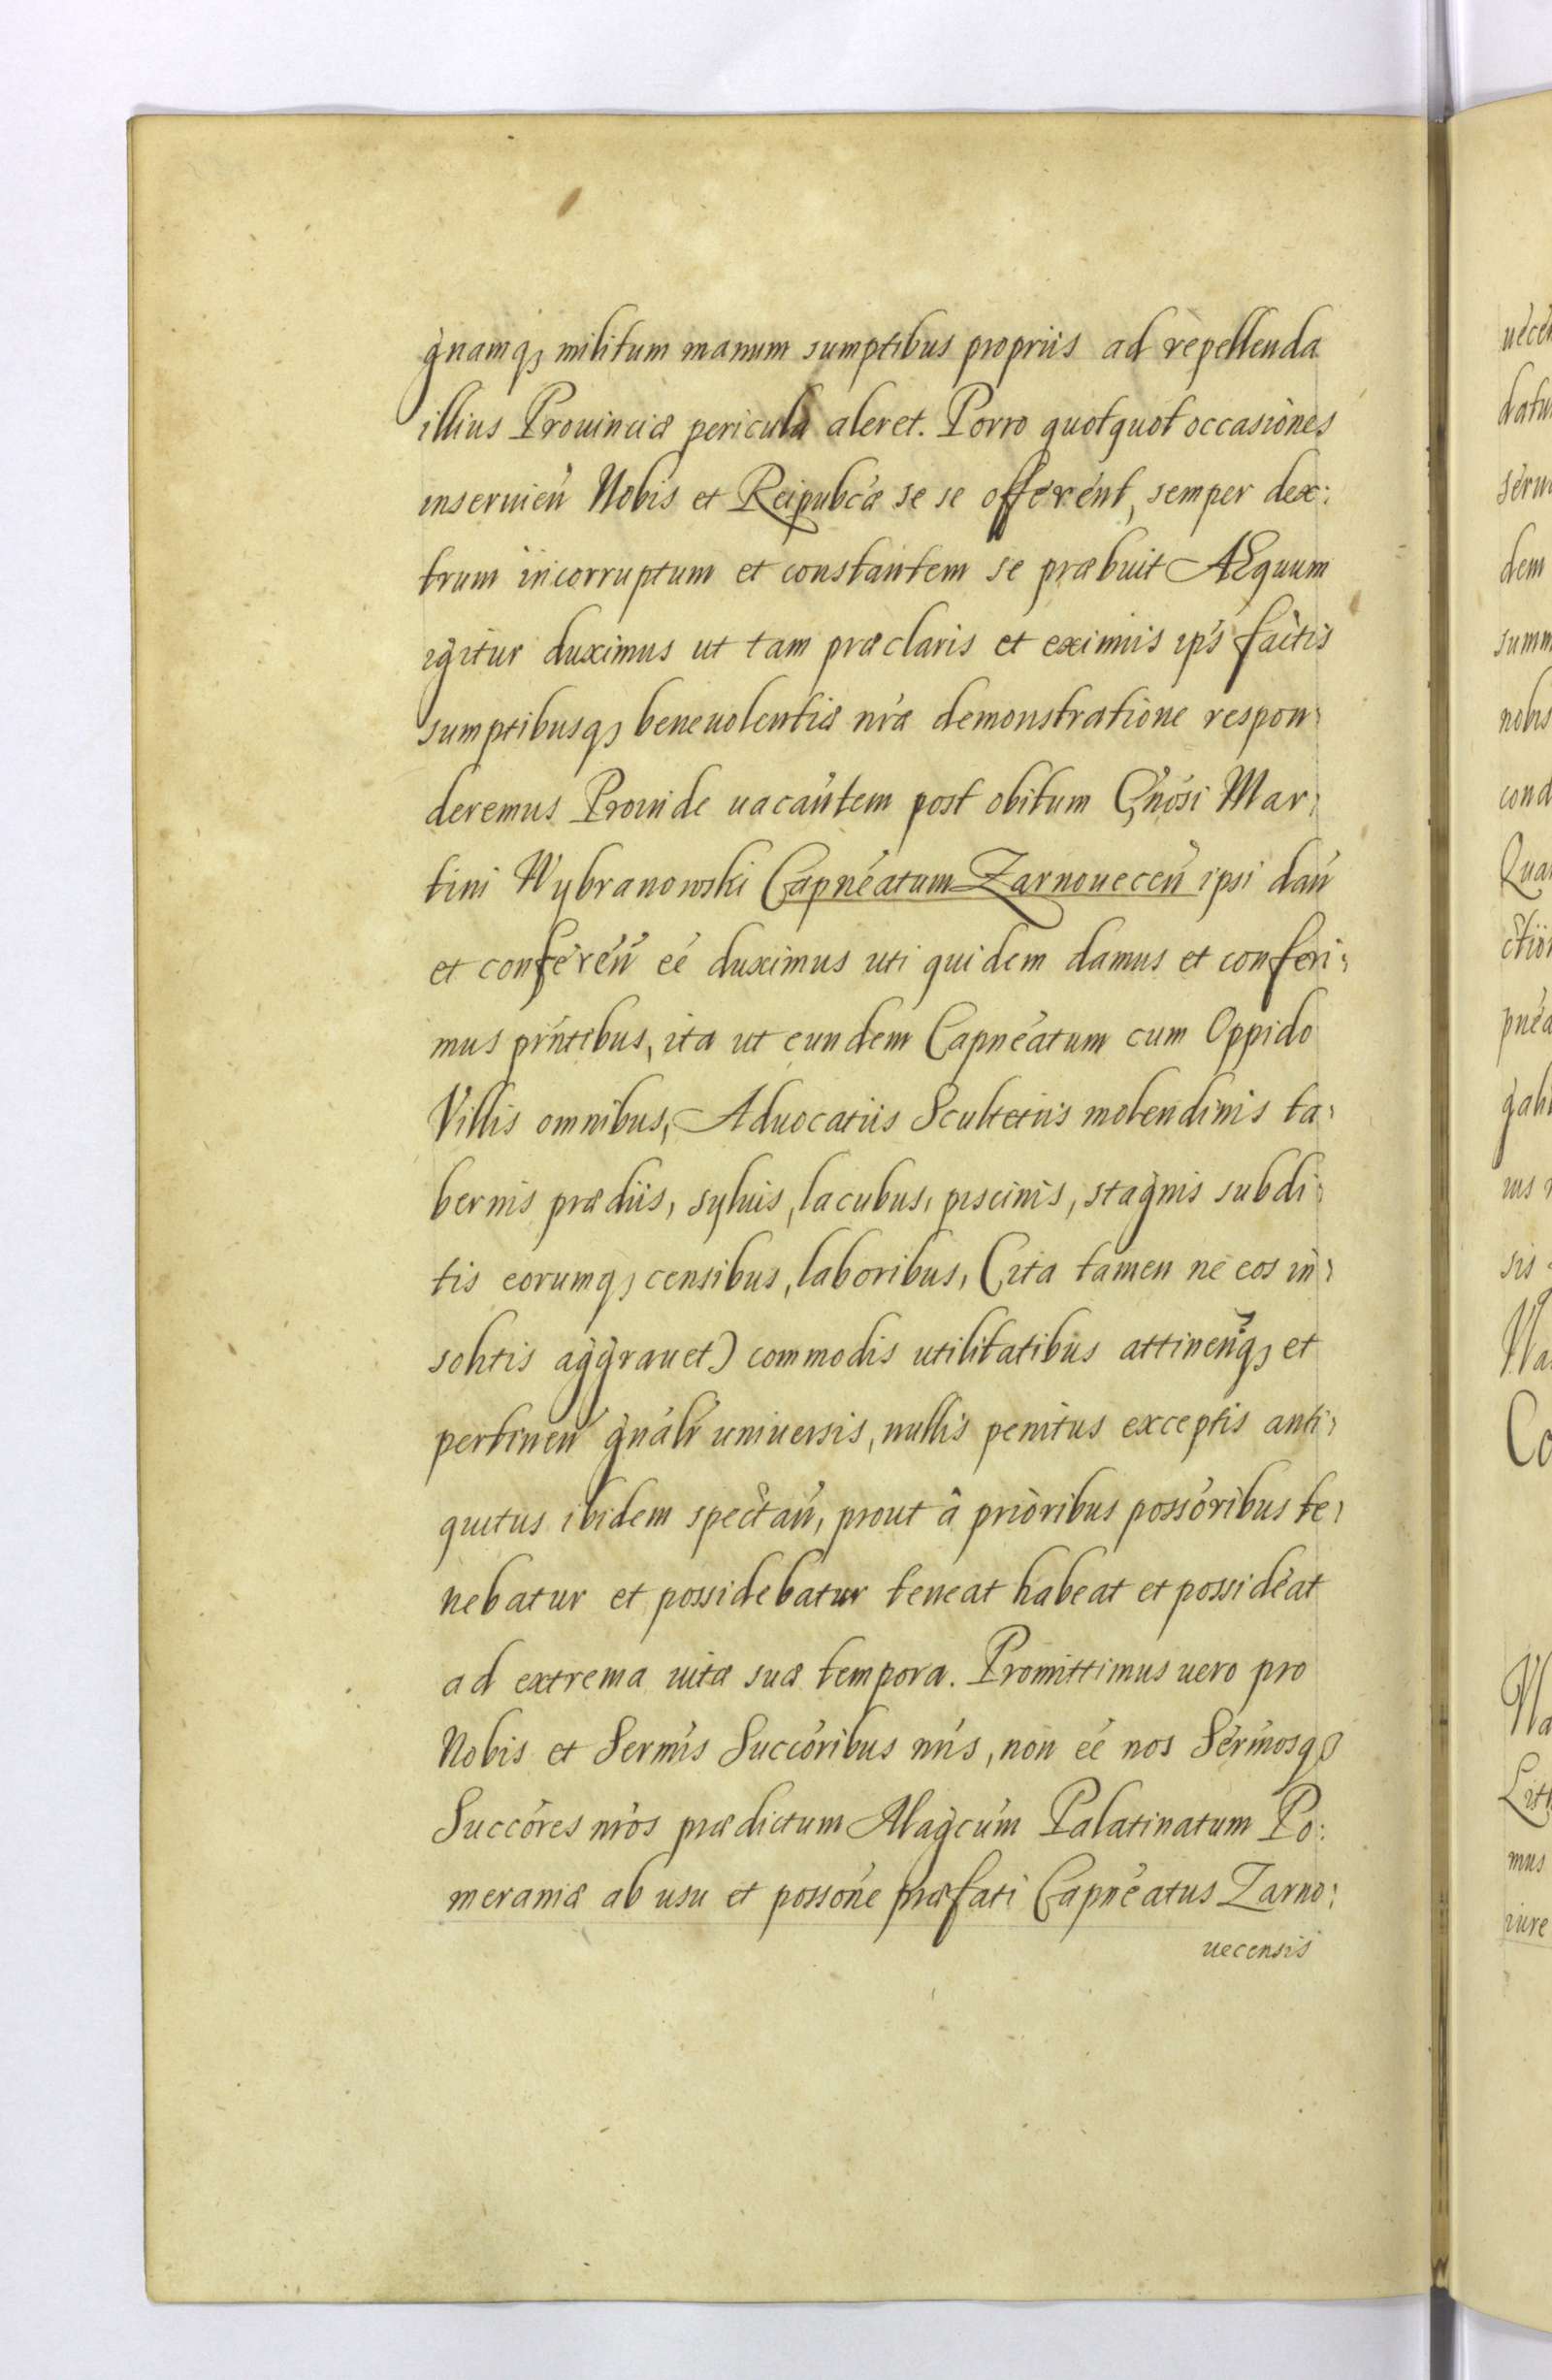 gnamq₃ militum manum sumptibus propriis ad repellenda
illius Prouinciæ pericula aleret. Porro quotquot occasiones
inseruień Nobis et Reipubcæ se se offerent, semper dex:
trum incorruptum et constantem se præbuit Æquum
igitur duximus ut tam præclaris et eximiis ips factis
sumptibusq₃ beneuolentiæ nræ demonstratione respon:
deremus Prouide uacantem post obitum Gnosi Mar:
tini Wybranowski Capneatum Zarnoueceń ipsi dań
et confereń eé duximus uti quidem damus et conferi:
mus pritibus, ita ut eundem Capneatum cum Oppido
Villis omnibus, Aduocatiis Scultetiis molendinis ta:
bernis prædiis, syluis, lacubus, piscinis, stagnis subdi:
tis eorumq₃ censibus, laboribus, (ita tamen ne eos in:
solitis aggrauet) commodis utilitatibus attineńq₃ et
pertineń gnalr uniuersis, nullis penitus exceptis anti:
quitus ibidem spectań, prout â prioribus possoribus te:
nebatur et possidebatur teneat habeat et possideat
ad extrema uitæ suæ tempora. Promittimus uero pro
Nobis et Sermis Succoribus nris, non eé nos Sermosq₃
Succores nros prædictum Magcum Palatinatum Po:
meraniæ ab usu et possone præfati Capneatus Zarno:
uecensis
uecen
datu
seru
dem
summ
nobis
cond
Qua
ction
pnea
gali
ius
sis
Wa
Co
Ma
Lit
mus
iure